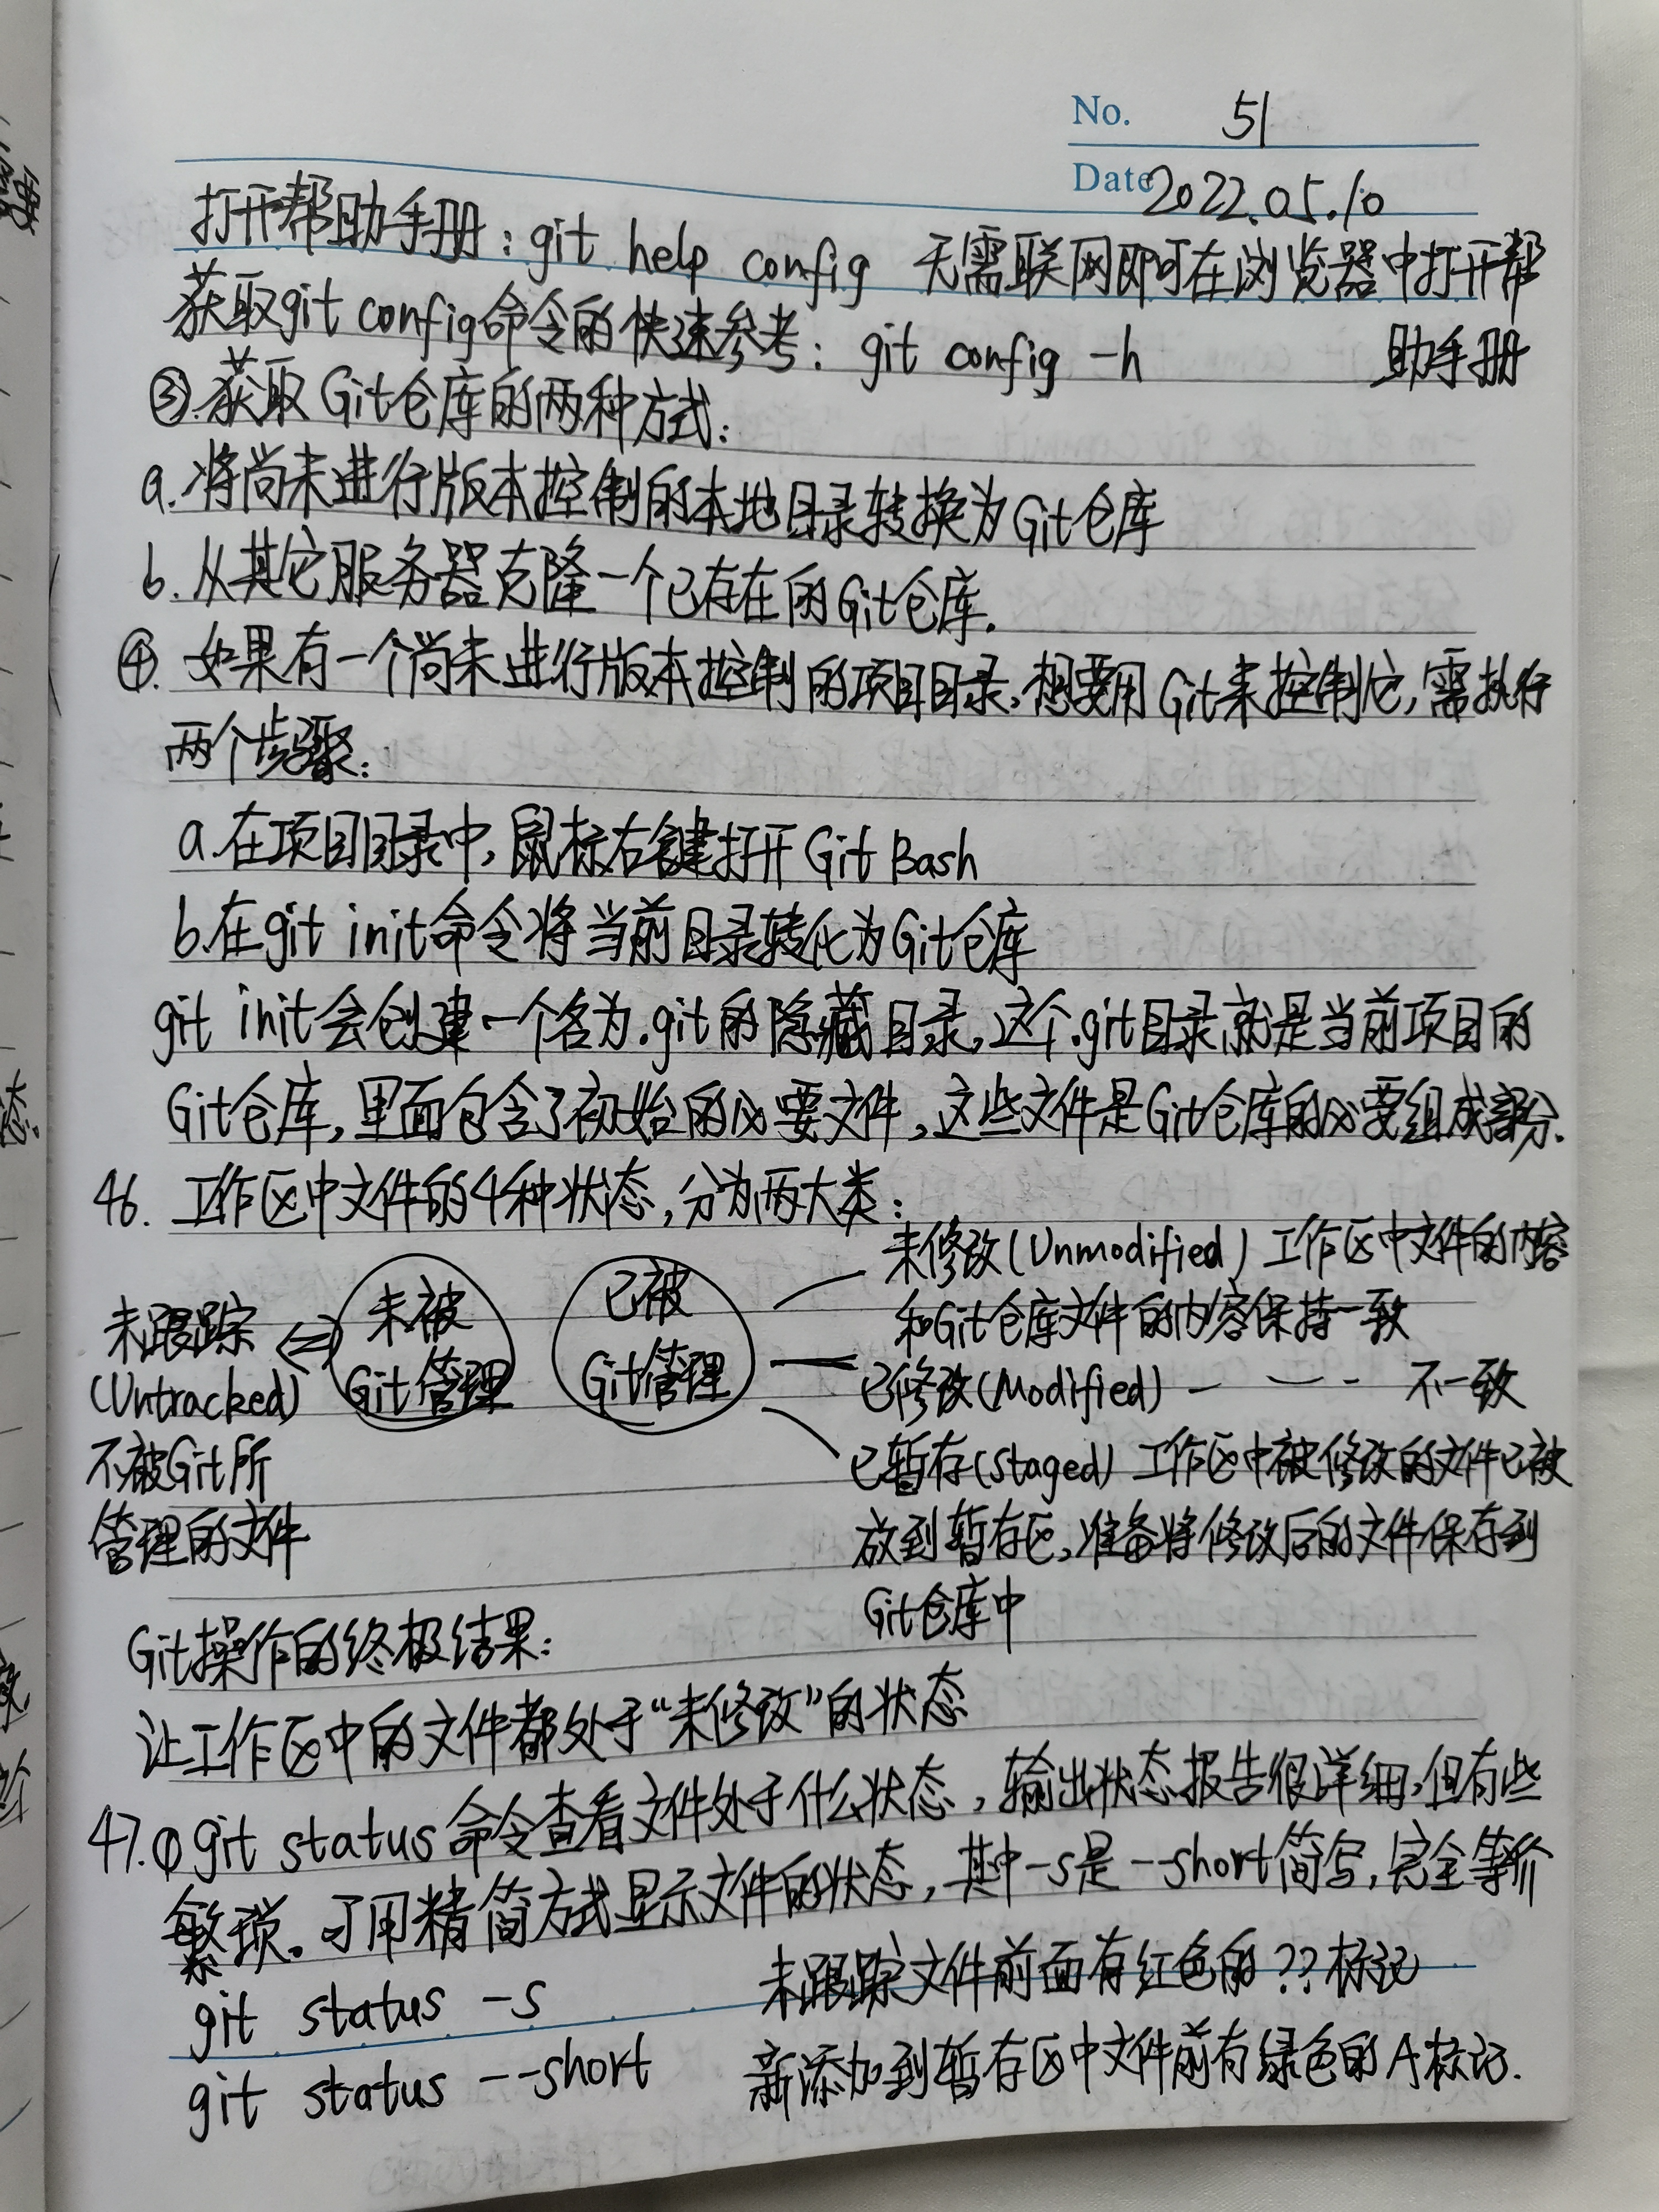 No. 51
Date 2022.05.10
打开帮助手册：git help config 无需联网即可在浏览器中打开帮
助手册
获取git config命令的快速参考：git config -h
③.获取Git仓库的两种方式：
a.将尚未进行版本控制的本地目录转换为Git仓库
b.从其它服务器克隆一个已存在的Git仓库.
④.如果有一个尚未进行版本控制的项目目录,想要用Git来控制它,需执行
两个步骤：
a.在项目目录中,鼠标右键打开Git Bash
b.在git init命令将当前目录转化为Git仓库
git init会创建一个名为.git的隐藏目录,这个.git目录就是当前项目的
Git仓库,里面包含了初始的必要文件,这些文件是Git仓库的必要组成部分.
46. 工作区中文件的4种状态,分为两大类：
未跟踪
(Untracked)
不被Git所
管理的文件
⇔
未被
Git管理
已被
Git管理
未修改(Unmodified) 工作区中文件的内容
和Git仓库文件的内容保持一致
已修改(Modified) — — - - 不一致
已暂存(staged) 工作区中被修改的文件已被
放到暂存区,准备将修改后的文件保存到
Git仓库中
Git操作的终极结果：
让工作区中的文件都处于“未修改”的状态
47.①git status命令查看文件处于什么状态,输出状态报告很详细,但有些
繁琐。可用精简方式显示文件的状态,其中-s是--short简写,完全等价
git status -s 未跟踪文件前面有红色的??标记
git status --short 新添加到暂存区中文件前有绿色的A标记.